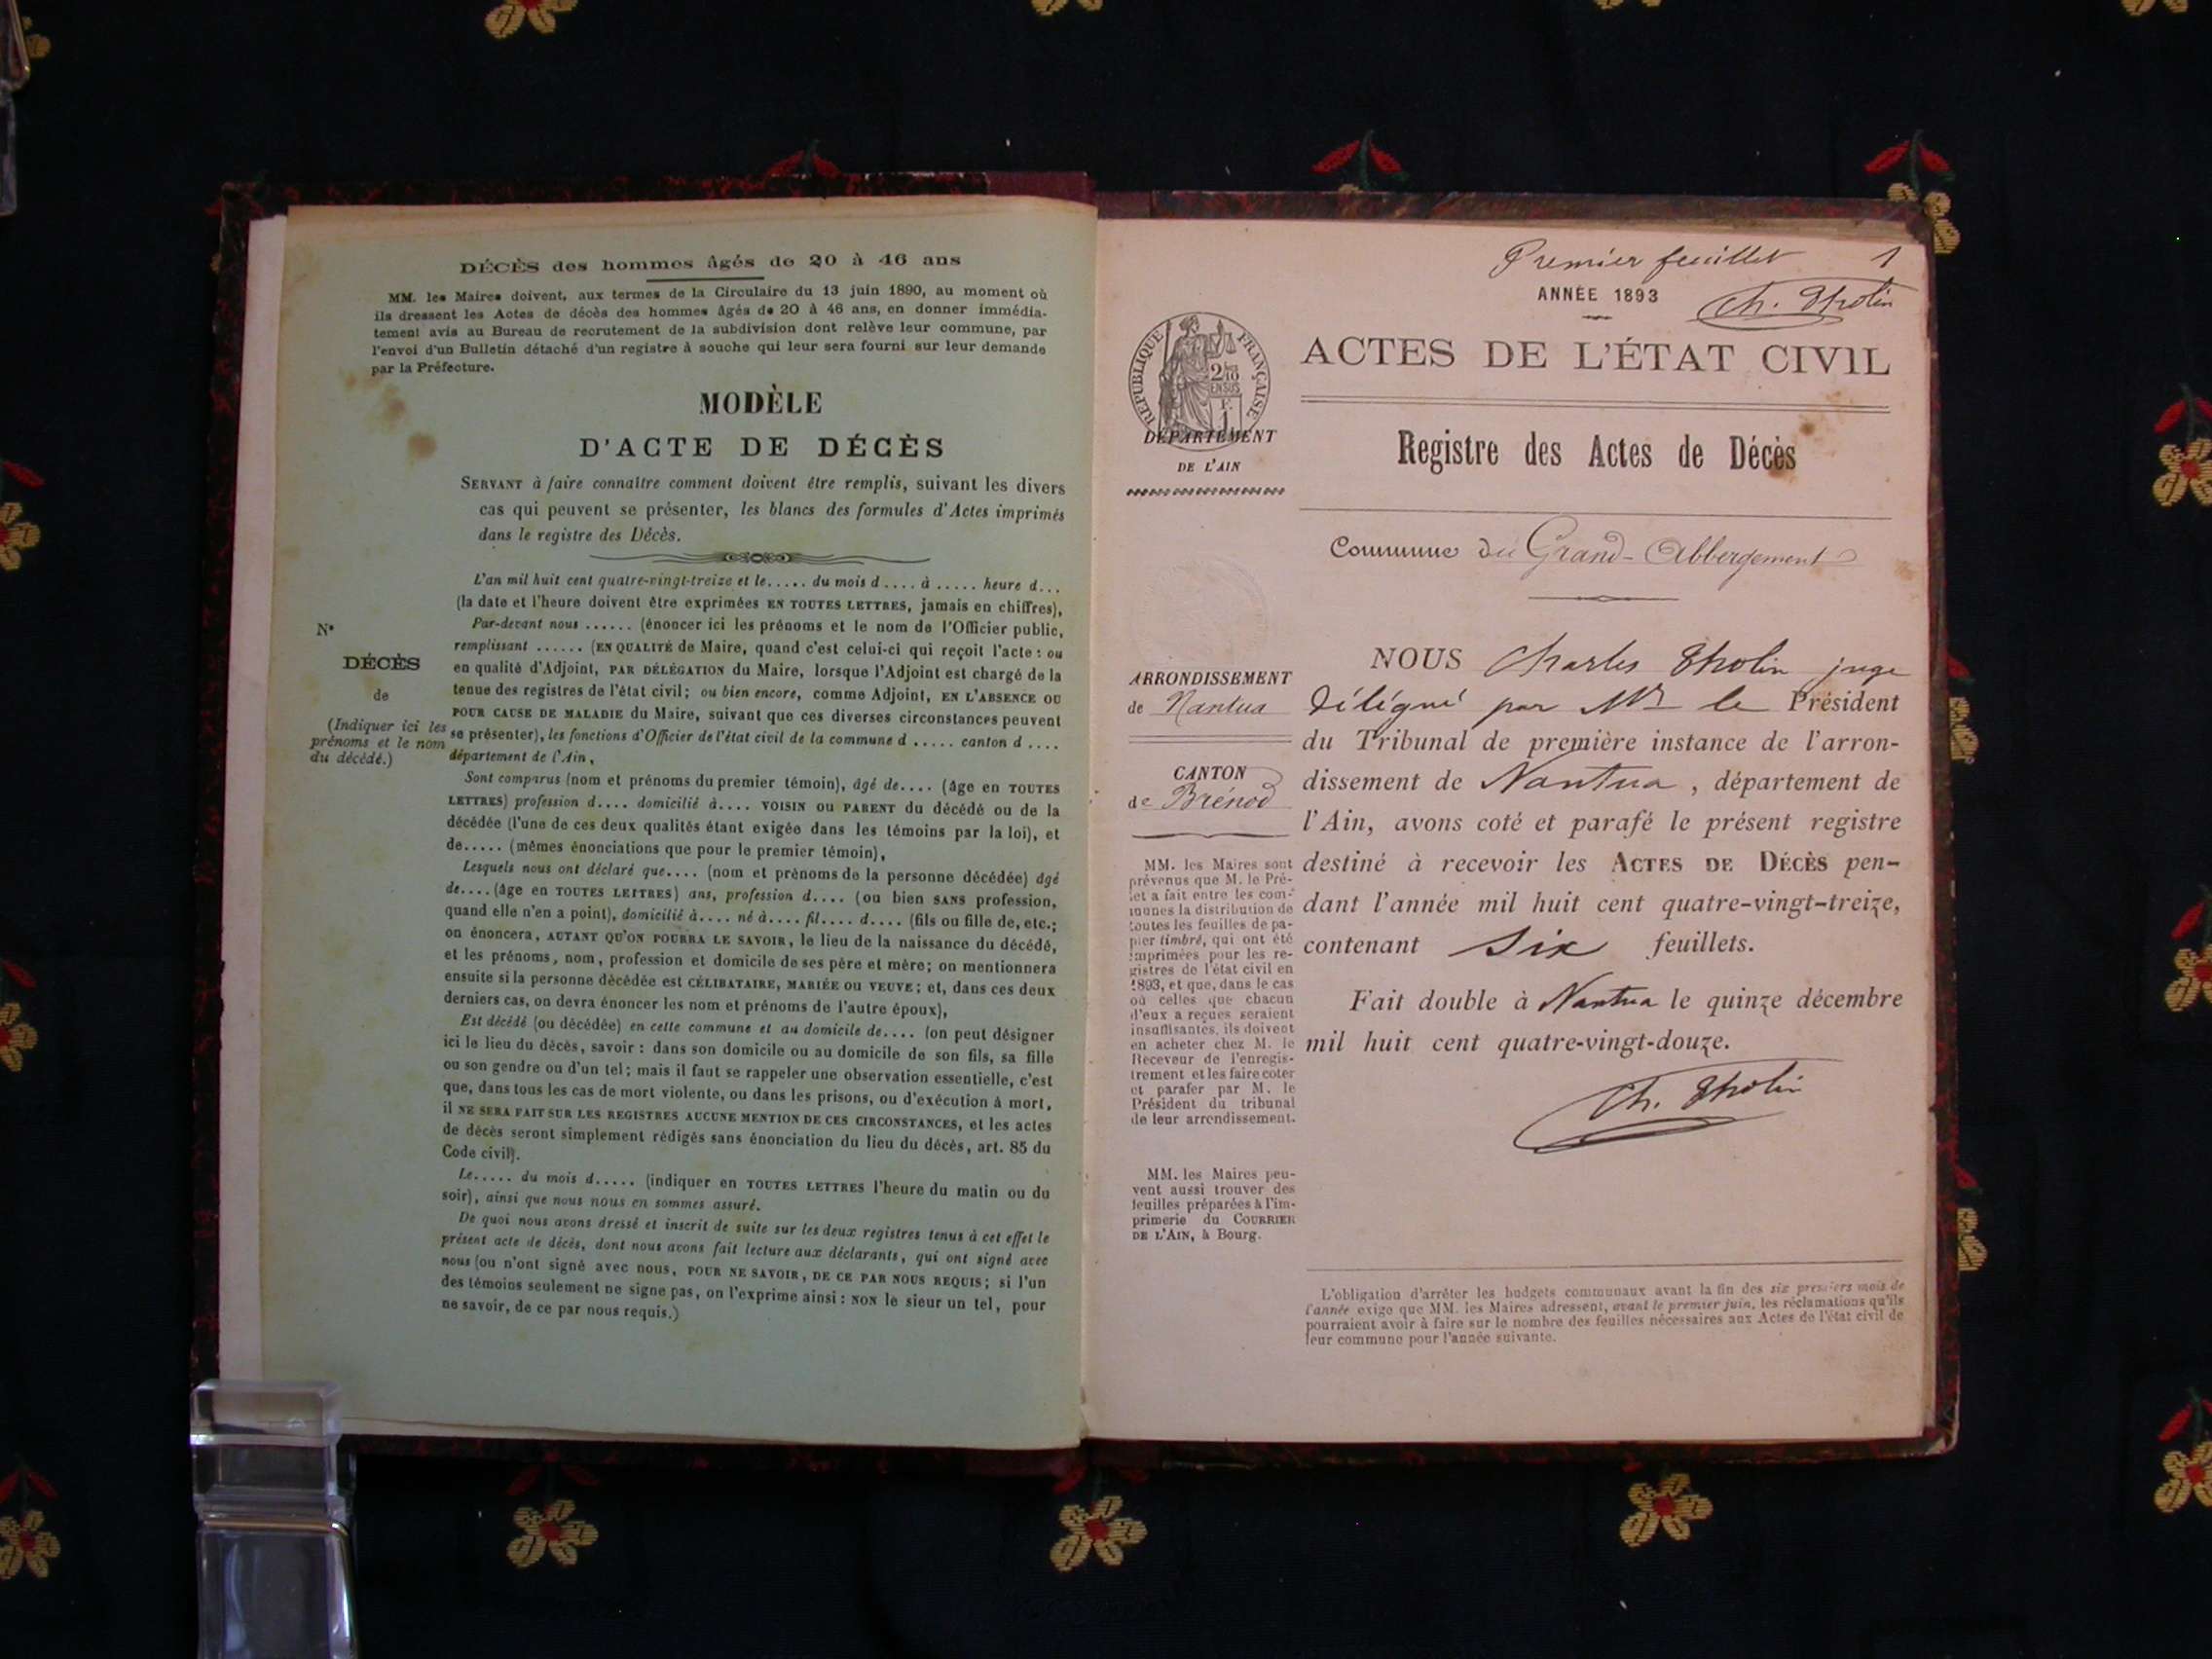 DÉCÈS des hommes âgés de 20 à 46 ans
MM. les Maires doivent, aux termes de la Circulaire du 13 juin 1890, au moment où
ils dressent les Actes de décès des hommes âgés de 20 à 46 ans, en donner immédia-
tement avis au Bureau de recrutement de la subdivision dont relève leur commune, par
l'envoi d'un Bulletin détaché d'un registre à souche qui leur sera fourni sur leur demande
par la Préfecture.
MODÈLE
D'ACTE DE DÉCÈS
SERVANT à faire connaître comment doivent être remplis, suivant les divers
cas qui peuvent se présenter, les blancs des formules d'Actes imprimés
dans le registre des Décès.
L'an mil huit cent quatre-vingt-treize et le..... du mois d.... à ..... heure d...
(la date et l'heure doivent être exprimées EN TOUTES LETTRES, jamais en chiffres),
Par-devant nous ...... (énoncer ici les prénoms et le nom de l'Officier public,
remplissant ...... (EN QUALITÉ de Maire, quand c'est celui-ci qui reçoit l'acte : ou
en qualité d'Adjoint, PAR DÉLÉGATION du Maire, lorsque l'Adjoint est chargé de la
tenue des registres de l'état civil; ou bien encore, comme Adjoint, EN L'ABSENCE OU
POUR CAUSE DE MALADIE du Maire, suivant que ces diverses circonstances peuvent
se présenter), les fonctions d'Officier de l'état civil de la commune d ..... canton d ....
département de l'Ain,
N°
DÉCÈS
de
(Indiquer ici les
prénoms et le nom
du décédé.)
Sont comparus (nom et prénoms du premier témoin), âgé de.... (âge en TOUTES
LETTRES) profession d.... domicilié à.... VOISIN OU PARENT du décédé ou de la
décédée (l'une de ces deux qualités étant exigée dans les témoins par la loi), et
de..... (mêmes énonciations que pour le premier témoin),
Lesquels nous ont déclaré que.... (nom et prénoms de la personne décédée) âgé
de.... (âge en TOUTES LETTRES) ans, profession d.... (ou bien SANS profession,
quand elle n'en a point), domicilié à.... né à.... fil.... d.... (fils ou fille de, etc.;
on énoncera, AUTANT QU'ON POURRA LE SAVOIR, le lieu de la naissance du décédé,
et les prénoms, nom, profession et domicile de ses père et mère; on mentionnera
ensuite si la personne décédée est CÉLIBATAIRE, MARIÉE OU VEUVE; et, dans ces deux
derniers cas, on devra énoncer les nom et prénoms de l'autre époux),
Est décédé (ou décédée) en cette commune et au domicile de.... (on peut désigner
ici le lieu du décès, savoir : dans son domicile ou au domicile de son fils, sa fille
ou son gendre ou d'un tel; mais il faut se rappeler une observation essentielle, c'est
que, dans tous les cas de mort violente, ou dans les prisons, ou d'exécution à mort,
il NE SERA FAIT SUR LES REGISTRES AUCUNE MENTION DE CES CIRCONSTANCES, et les actes
de décès seront simplement rédigés sans énonciation du lieu du décès, art. 85 du
Code civil).
Le..... du mois d..... (indiquer en TOUTES LETTRES l'heure du matin ou du
soir), ainsi que nous nous en sommes assuré.
De quoi nous avons dressé et inscrit de suite sur les deux registres tenus à cet effet le
présent acte de décès, dont nous avons fait lecture aux déclarants, qui ont signé avec
nous (ou n'ont signé avec nous, POUR NE SAVOIR, DE CE PAR NOUS REQUIS; si l'un
des témoins seulement ne signe pas, on l'exprime ainsi : NON le sieur un tel, pour
ne savoir, de ce par nous requis.)
Premier feuillet 1
ANNÉE 1893
Ch. Tholin
RÉPUBLIQUE FRANÇAISE
2/10 EN SUS
F. 1
DÉPARTEMENT
DE L'AIN
ACTES DE L'ÉTAT CIVIL
Registre des Actes de Décès
Commune du Grand-Abbergement
ARRONDISSEMENT
de Nantua
CANTON
de Brénod
MM. les Maires sont
prévenus que M. le Pré-
fet a fait entre les com-
munes la distribution de
toutes les feuilles de pa-
pier timbré, qui ont été
imprimées pour les re-
gistres de l'état civil en
1893, et que, dans le cas
où celles que chacun
d'eux a reçues seraient
insuffisantes, ils doivent
en acheter chez M. le
Receveur de l'enregis-
trement et les faire coter
et parafer par M. le
Président du tribunal
de leur arrondissement.
MM. les Maires peu-
vent aussi trouver des
feuilles préparées à l'im-
primerie du COURRIER
DE L'AIN, à Bourg.
NOUS Charles Tholin juge
délégué par Mr le Président
du Tribunal de première instance de l'arron-
dissement de Nantua, département de
l'Ain, avons coté et parafé le présent registre
destiné à recevoir les ACTES DE DÉCÈS pen-
dant l'année mil huit cent quatre-vingt-treize,
contenant six feuillets.
Fait double à Nantua le quinze décembre
mil huit cent quatre-vingt-douze.
Ch. Tholin
L'obligation d'arrêter les budgets communaux avant la fin des six premiers mois de
l'année exige que MM. les Maires adressent, avant le premier juin, les réclamations qu'ils
pourraient avoir à faire sur le nombre des feuilles nécessaires aux Actes de l'état civil de
leur commune pour l'année suivante.